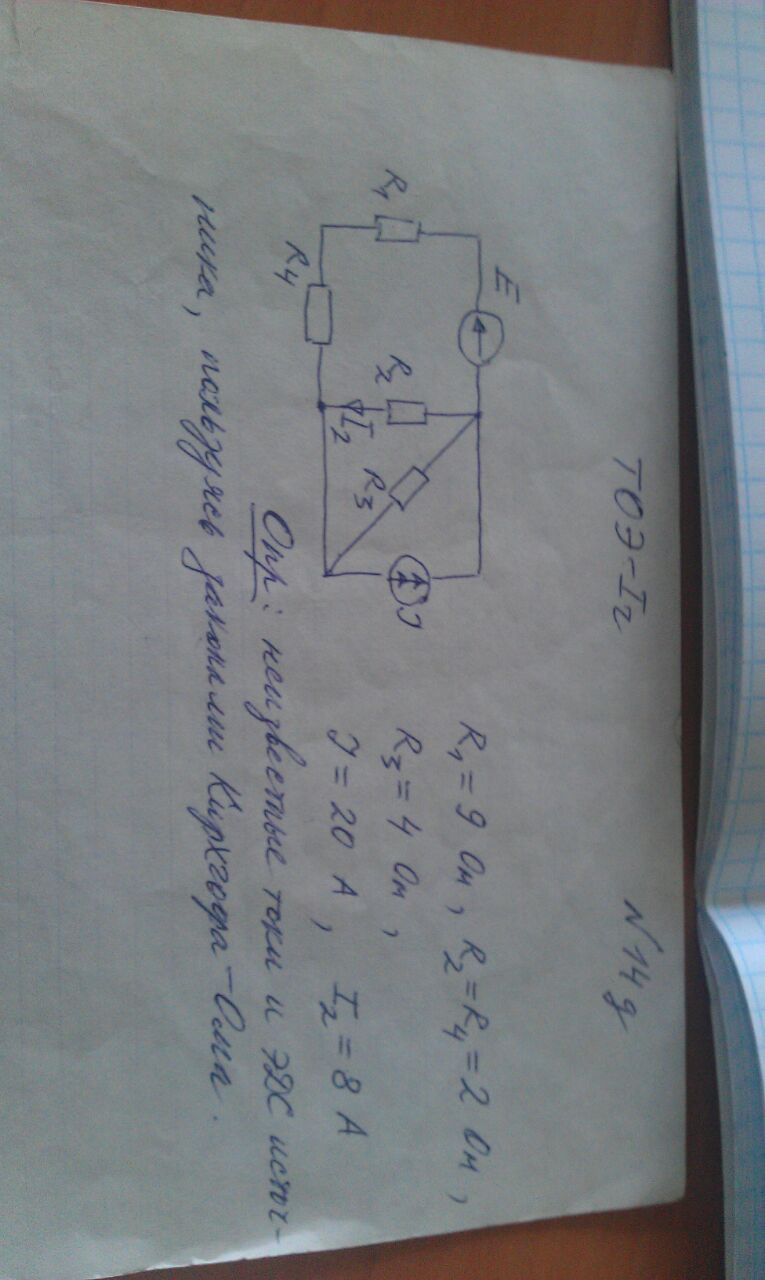 ТОЭ-I₂
N 14 g
E
R₁
R₂
I₂
R₃
J
R₄
R₁ = 9 Ом, R₂ = R₄ = 2 Ом,
R₃ = 4 Ом,
J = 20 А, I₂ = 8 А
Опр: неизвестные токи и ЭДС источ-
ника, пользуясь законами Кирхгофа-Ома.